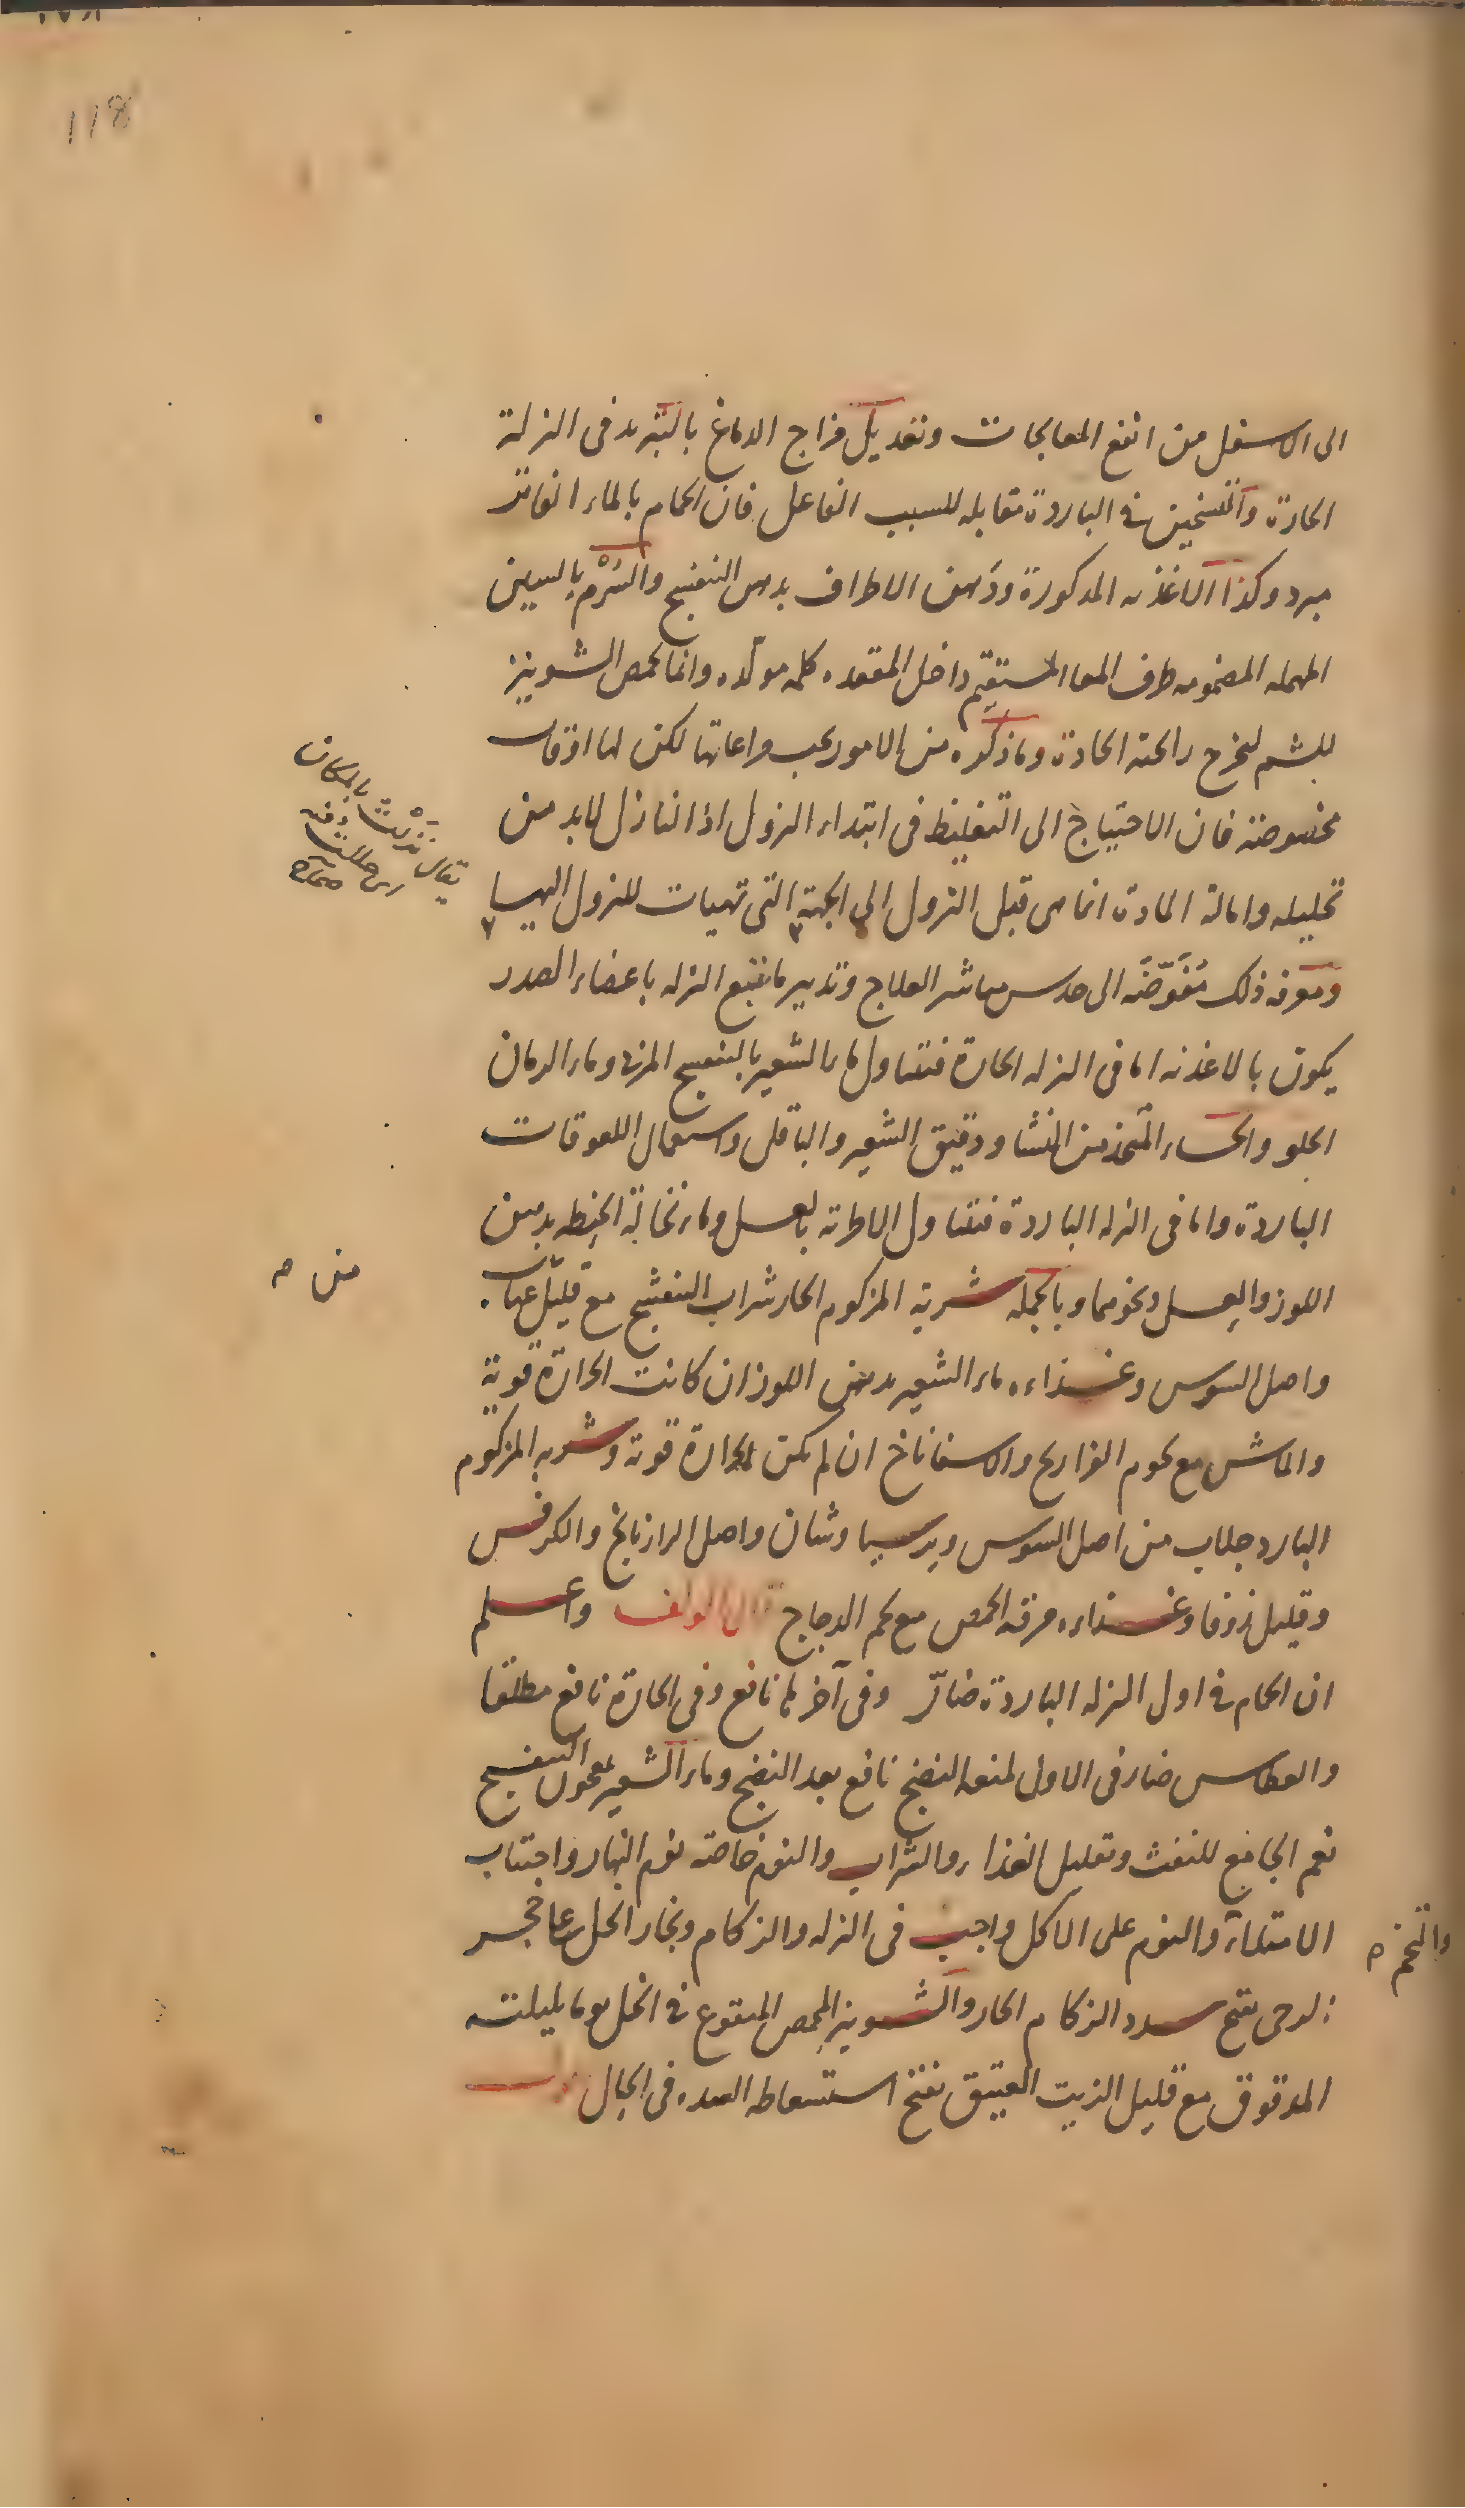 118
الى الاسفل من انفع المعالجات وتعديل مزاج الدماغ بالتبريد فى النزلة
الحارة والتسخين فى الباردة مقابله للسبب الفاعل فان الحمام بالماء الفاتر
مبرد وكذا الاغذيه المذكورة ودهن الاطراف بدهن البنفسج والسُرْم بالسين
المهمله المضمومه طرف المعا المستقيم داخل المقعده كلمه مولده وانما يحمص الشونيز
للشم ليخرج رائحته الحادة وما ذكره من الامور يجب مراعاتها لكن لها اوقات
مخصوصة فان الاحتياج الى التغليظ فى ابتداء النزول اذ النازل لابد من
تحليله وامالة المادة انما هى قبل النزول الى الجهة التى تهيات للنزول اليها
ومعرفه ذلك مُفَوّضَه الى حدس مباشر العلاج وتدبير ما يتبع النزله باعضاء الصدر
يكون بالاغذيه اما فى النزله الحارة فتناول ماء الشعير بالبنفسج المربى وماء الرمان
الحلو والحساء المتخذ من النشا ودقيق الشعير والباقلى واستعمال اللعوقات
الباردة واما فى النزله الباردة فتناول الاطريه بالعسل وماء نخالة الحنطه بدهن
اللوز والعسل ونحوهما وبالجمله شربة المزكوم الحار شراب البنفسج مع قليل عناب
واصل السوس وغذاءه ماء الشعير بدهن اللوز ان كانت الحرارة قوية
والماش مع لحوم الفراريح والاسفاناخ ان لم يكن الحرارة قوية وشربه المزكوم
البارد جلاب من اصل السوس وبرسياوشان واصل الرازيانج والكرفس
وقليل زوفا وغذاءه مرقة الحمص مع لحم الدجاج قال المولف واعلم
ان الحمام فى اول النزله الباردة ضارّ وفى آخرها نافع وفى الحارة نافع مطلقا
والعطاس ضار فى الاول لمنعه النضج نافع بعد النضج وماء الشعير بمعجون البنفسج
نعم الجامع للنفث وتقليل الغذاء والشراب والنوم خاصة نوم النهار واجتناب
الامتلاء والنوم على الاكل واجب فى النزله والزكام وبخار الخل على حجر
الرحى يفتح سدد الزكام الحار والشونيز المحمص المنقوع فى الخل يوما بليلته
المدقوق مع قليل الزيت العتيق يفتح استسعاطه السده فى الحال
يقال بالمكان
اى
صحاح
من م
والتخم م